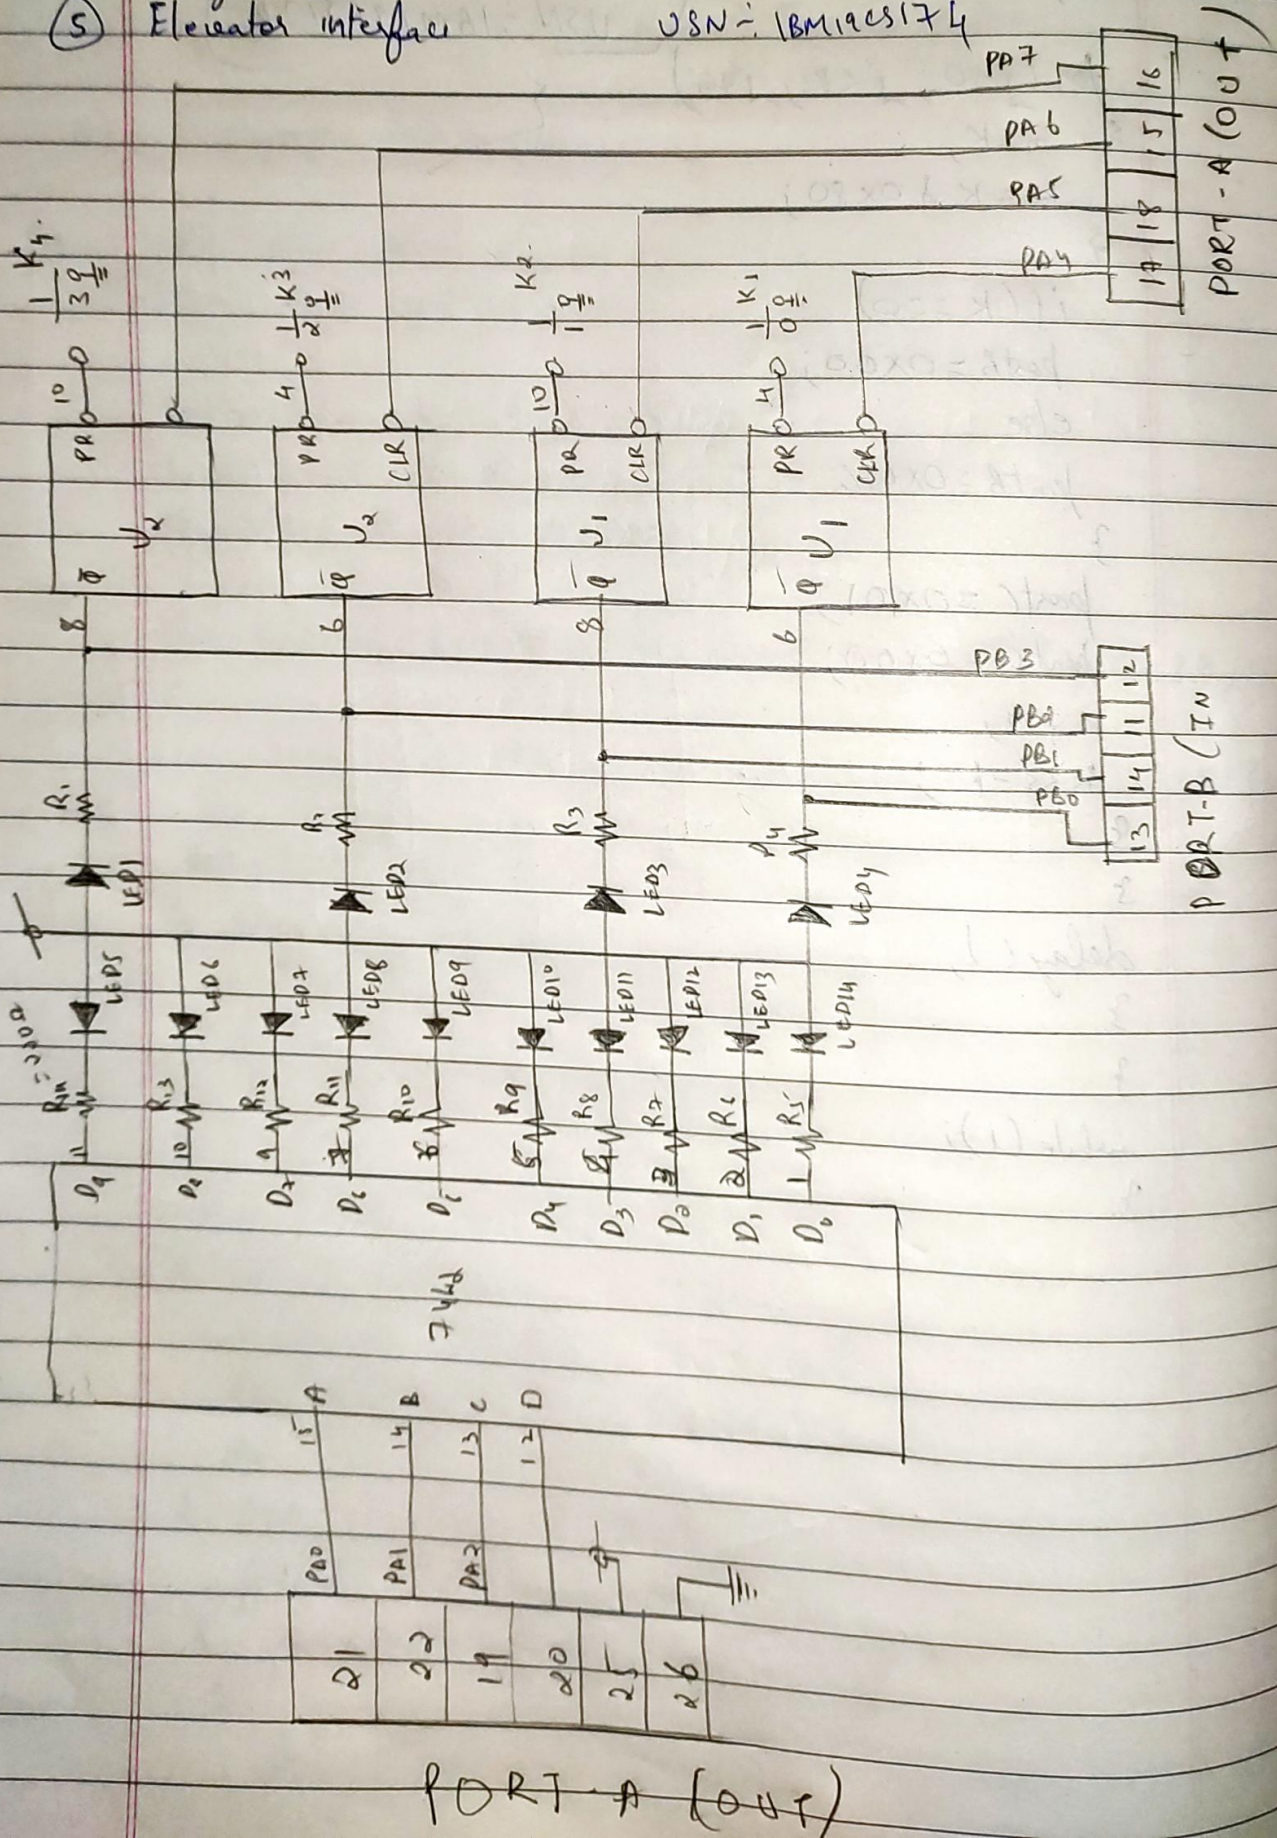 5 Elevator interface USN-: 1BM19CS174
PA7
PA6
PA5
PA4
16
15
18
17
PORT-A (OUT)
K4.
1
3
10
PR
Q̄
U2
8
K3
1
2
4
PR
CLR
Q̄
U2
6
K2.
1
1
10
PR
CLR
Q̄
U1
8
K1
1
0
4
PR
CLR
Q̄
U1
6
PB3
PB2
PB1
PB0
12
11
14
13
PORT-B (IN
R1
R2
R3
R4
LED1
LED2
LED3
LED4
LED5
LED6
LED7
LED8
LED9
LED10
LED11
LED12
LED13
LED14
R14 =220Ω
R13
R12
R11
R10
R9
R8
R7
R6
R5
11
10
9
7
6
5
4
3
2
1
D9
D8
D7
D6
D5
D4
D3
D2
D1
D0
7442
15 A
14 B
13 C
12 D
PA0
PA1
PA2
21
22
19
20
25
26
PORT-A (OUT)